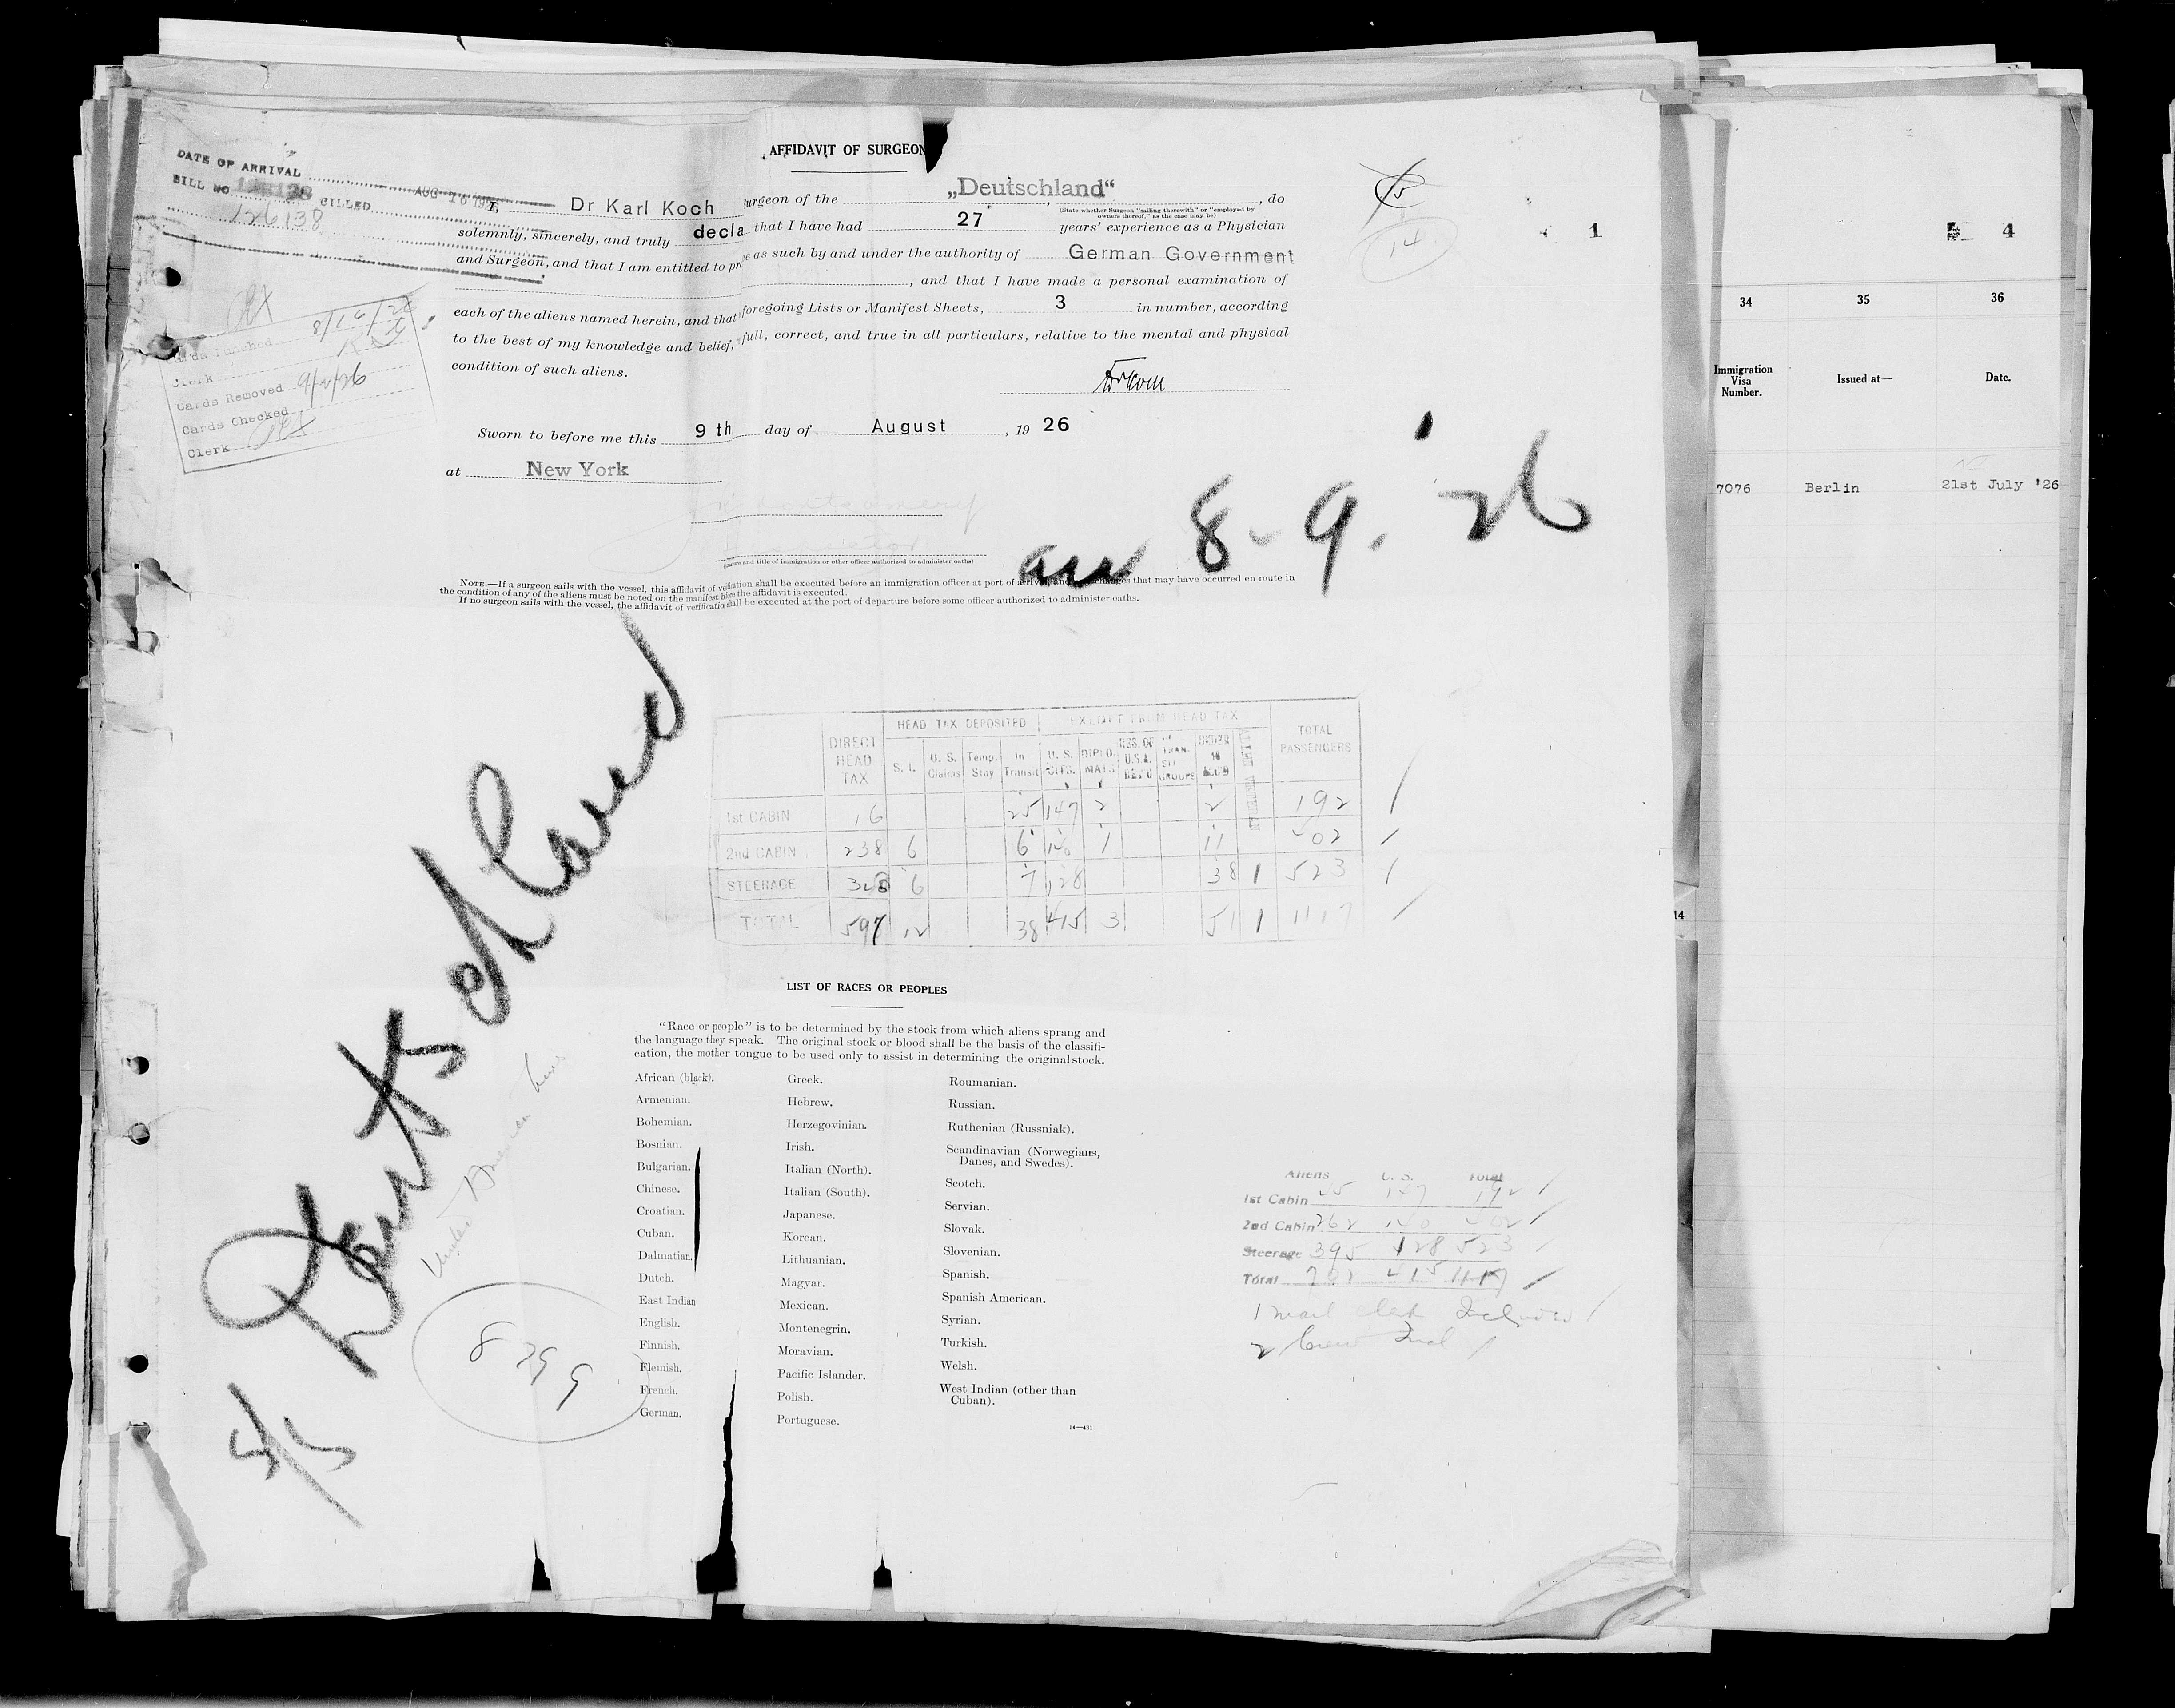 AFFIDAVIT OF SURGEON
DATE OF ARRIVAL AUG 16 192
BILL NO. BILLED
126138
I, Dr Karl Koch surgeon of the „Deutschland“, do
(State whether Surgeon "sailing therewith" or "employed by
owners thereof," as the case may be)
solemnly, sincerely, and truly decla that I have had 27 years' experience as a Physician
and Surgeon, and that I am entitled to pr ce as such by and under the authority of German Government
, and that I have made a personal examination of
each of the aliens named herein, and that foregoing Lists or Manifest Sheets, 3 in number, according
to the best of my knowledge and belief, full, correct, and true in all particulars, relative to the mental and physical
condition of such aliens.
Cards Punched 8/16/26
Clerk
Cards Removed 9/2/26
Cards Checked
Clerk
Sworn to before me this 9 th day of August, 19 26
at New York
(Name and title of immigration or other officer authorized to administer oaths)
8-9. 26
NOTE.—If a surgeon sails with the vessel, this affidavit of verification shall be executed before an immigration officer at port of arrival, and changes that may have occurred en route in
the condition of any of the aliens must be noted on the manifest before the affidavit is executed.
If no surgeon sails with the vessel, the affidavit of verification shall be executed at the port of departure before some officer authorized to administer oaths.
5
14
1
S/S Deutschland
United American Line
8299
DIRECT HEAD TAX
HEAD TAX DEPOSITED
EXEMPT FROM HEAD TAX
TOTAL PASSENGERS
S. I. U. S. Claims Temp. Stay In Transit U. S. CITS. DIPLO MATS RES. OF U.S.A. DEP'D TRAN SIT GROUPS UNDER 16 ACC'D
1st CABIN 16 25 147 2 2 192
2nd CABIN 238 6 6 140 1 11 402
STEERAGE 343 6 7 128 38 1 523
TOTAL 597 12 38 415 3 51 1 1117
LIST OF RACES OR PEOPLES
"Race or people" is to be determined by the stock from which aliens sprang and
the language they speak. The original stock or blood shall be the basis of the classifi-
cation, the mother tongue to be used only to assist in determining the original stock.
African (black).
Armenian.
Bohemian.
Bosnian.
Bulgarian.
Chinese.
Croatian.
Cuban.
Dalmatian.
Dutch.
East Indian
English.
Finnish.
Flemish.
French.
German.
Greek.
Hebrew.
Herzegovinian.
Irish.
Italian (North).
Italian (South).
Japanese.
Korean.
Lithuanian.
Magyar.
Mexican.
Montenegrin.
Moravian.
Pacific Islander.
Polish.
Portuguese.
Roumanian.
Russian.
Ruthenian (Russniak).
Scandinavian (Norwegians,
Danes, and Swedes).
Scotch.
Servian.
Slovak.
Slovenian.
Spanish.
Spanish American.
Syrian.
Turkish.
Welsh.
West Indian (other than
Cuban).
14—431
Aliens U. S. Total
1st Cabin 45 147 192
2nd Cabin 262 140 402
Steerage 395 128 523
Total 702 415 1117
1 mail clerk Included
2 Crew Incl
4
34 35 36
Immigration
Visa
Number.
Issued at—
Date.
7076 Berlin 21st July '26
14